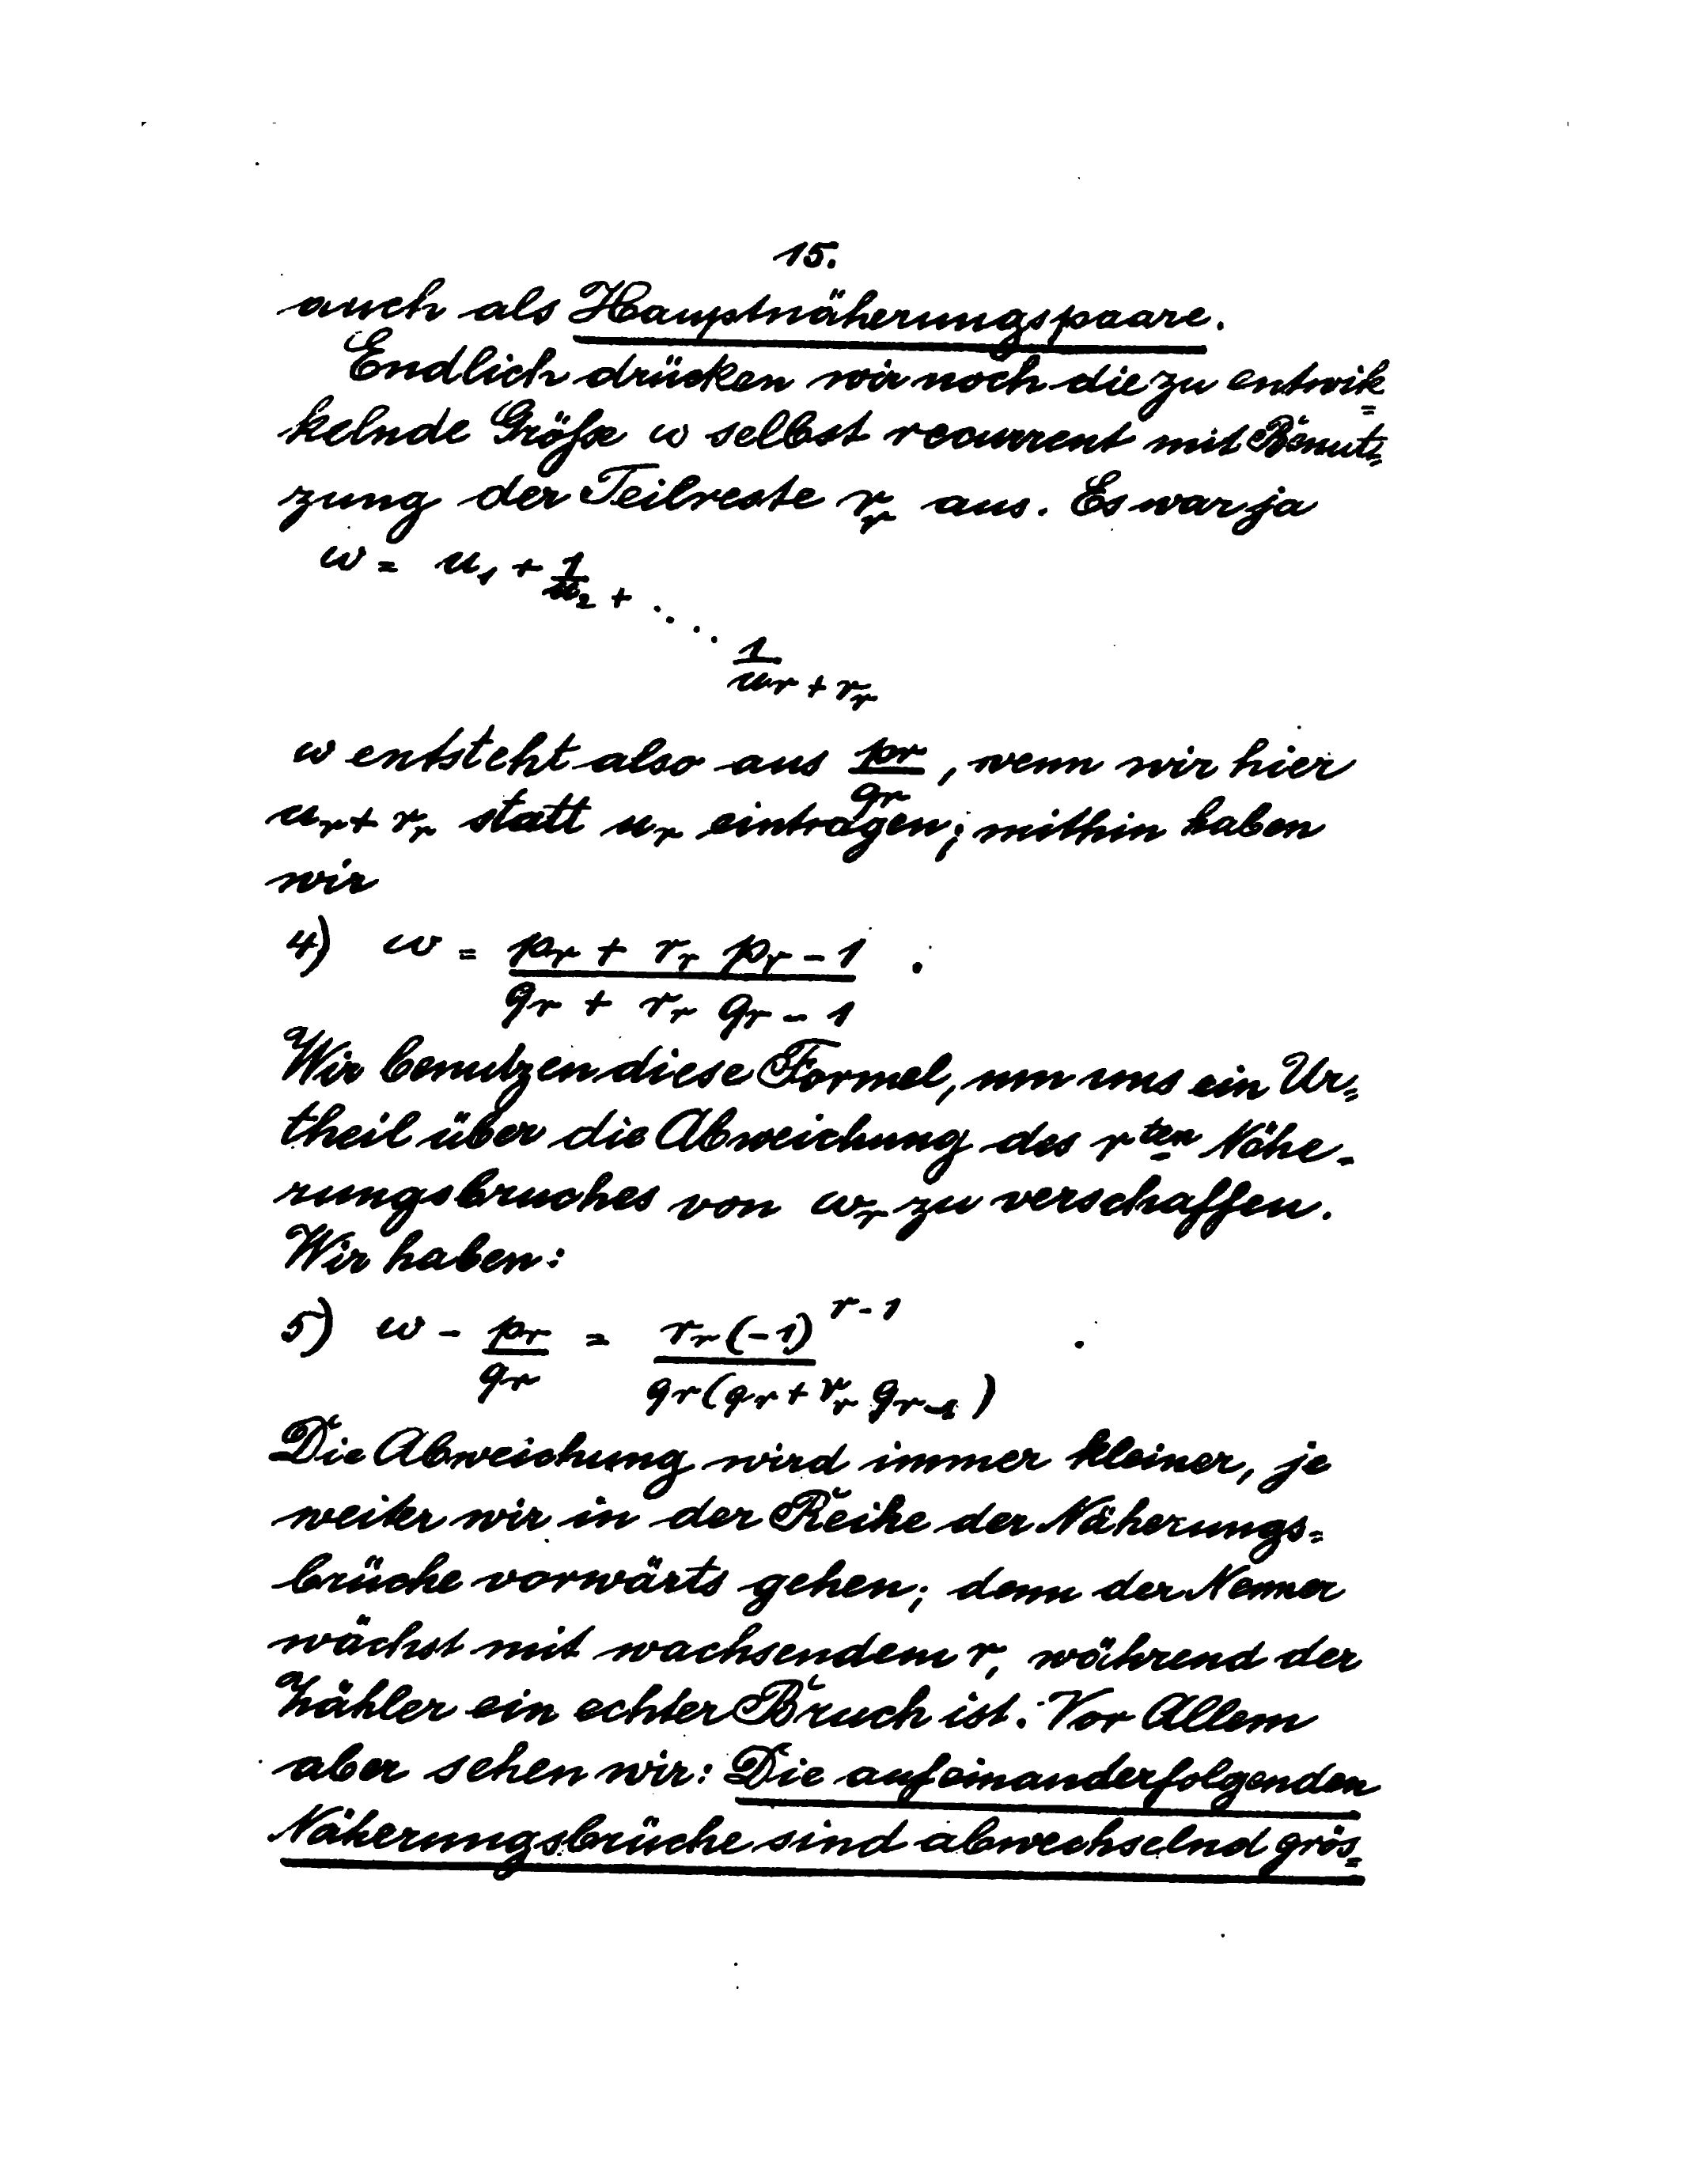 15.
auch als Hauptnäherungspaare.
Endlich drücken wir noch die zu entwik=
kelnde Größe ω selbst recurrent mit Benut=
zung der Teilreste r_r aus. Es war ja
ω = u_1 + 1/u_2 + . . . .
1/u_r + r_r
ω entsteht also aus p_r/q_r, wenn wir hier
u_r + r_r statt u_r eintragen; mithin haben
wir
4) ω = (p_r + r_r p_r-1)/(q_r + r_r q_r-1) .
Wir benutzen diese Formel, um uns ein Ur=
theil über die Abweichung des r^ten Nähe-
rungsbruches von ω_r zu verschaffen.
Wir haben:
5) ω - p_r/q_r = r_r(-1)^r-1/q_r(q_r + r_r q_r-1) .
Die Abweichung wird immer kleiner, je
weiter wir in der Reihe der Näherungs=
brüche vorwärts gehen; denn der Nenner
wächst mit wachsendem r, während der
Zähler ein echter Bruch ist. Vor Allem
aber sehen wir: Die aufeinanderfolgenden
Näherungsbrüche sind abwechselnd grös=